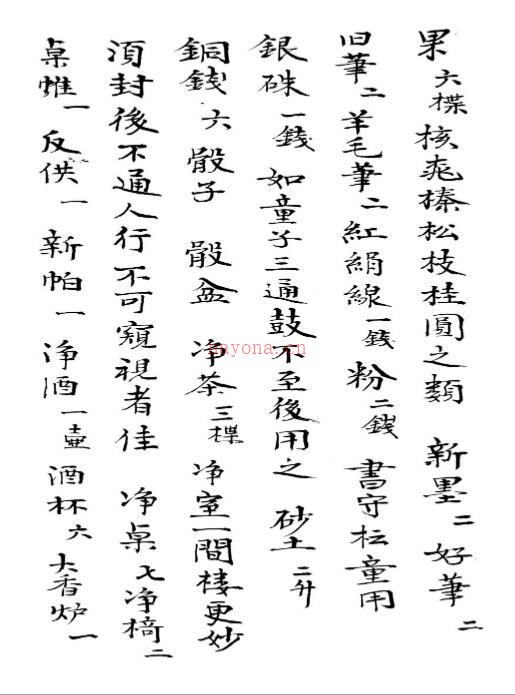 果六楪核桃榛松枝桂圓之類 新墨二好筆二
旧筆二羊毛筆二紅絹線一錢粉二錢書守坛童用
銀硃一錢如童子三通鼓不至後用之 砂土二升
銅錢六骰子 骰盆 净茶三楪净室一間楼更妙
須封後不通人行不可窺視者佳 净桌七净椅二
桌帷一反供一新帕一净酒一壺酒杯六大香炉一
nayona.cn